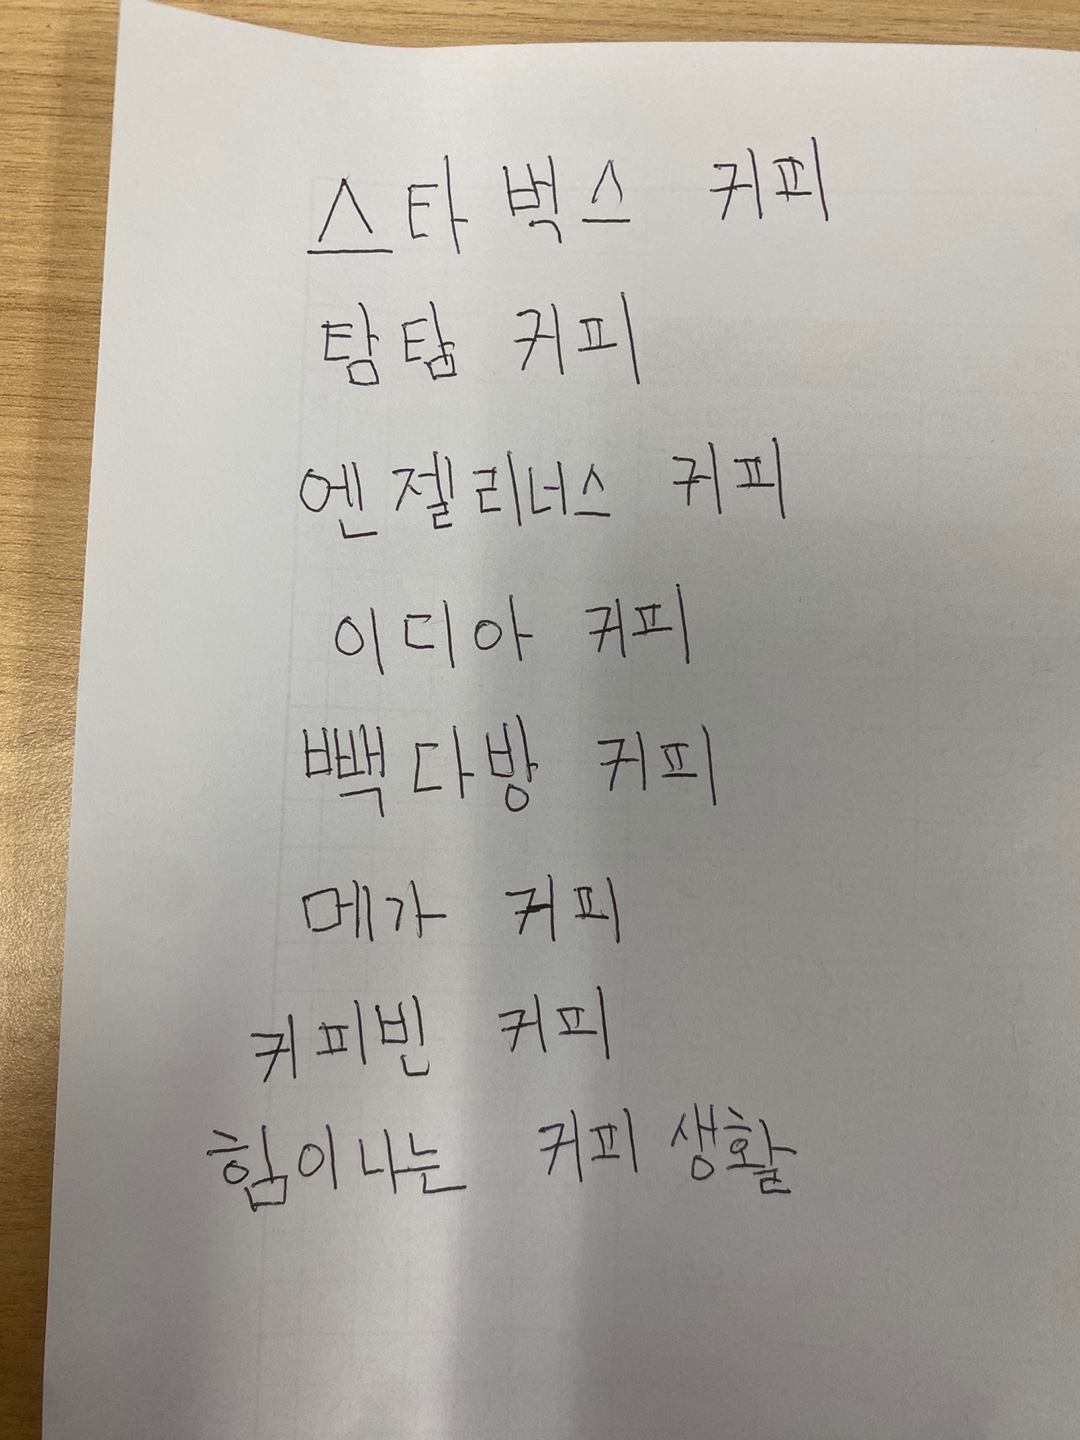 스타벅스 커피
탐탐 커피
엔젤리너스 커피
이디아 커피
빽다방 커피
메가 커피
커피빈 커피
힘이나는 커피 생활